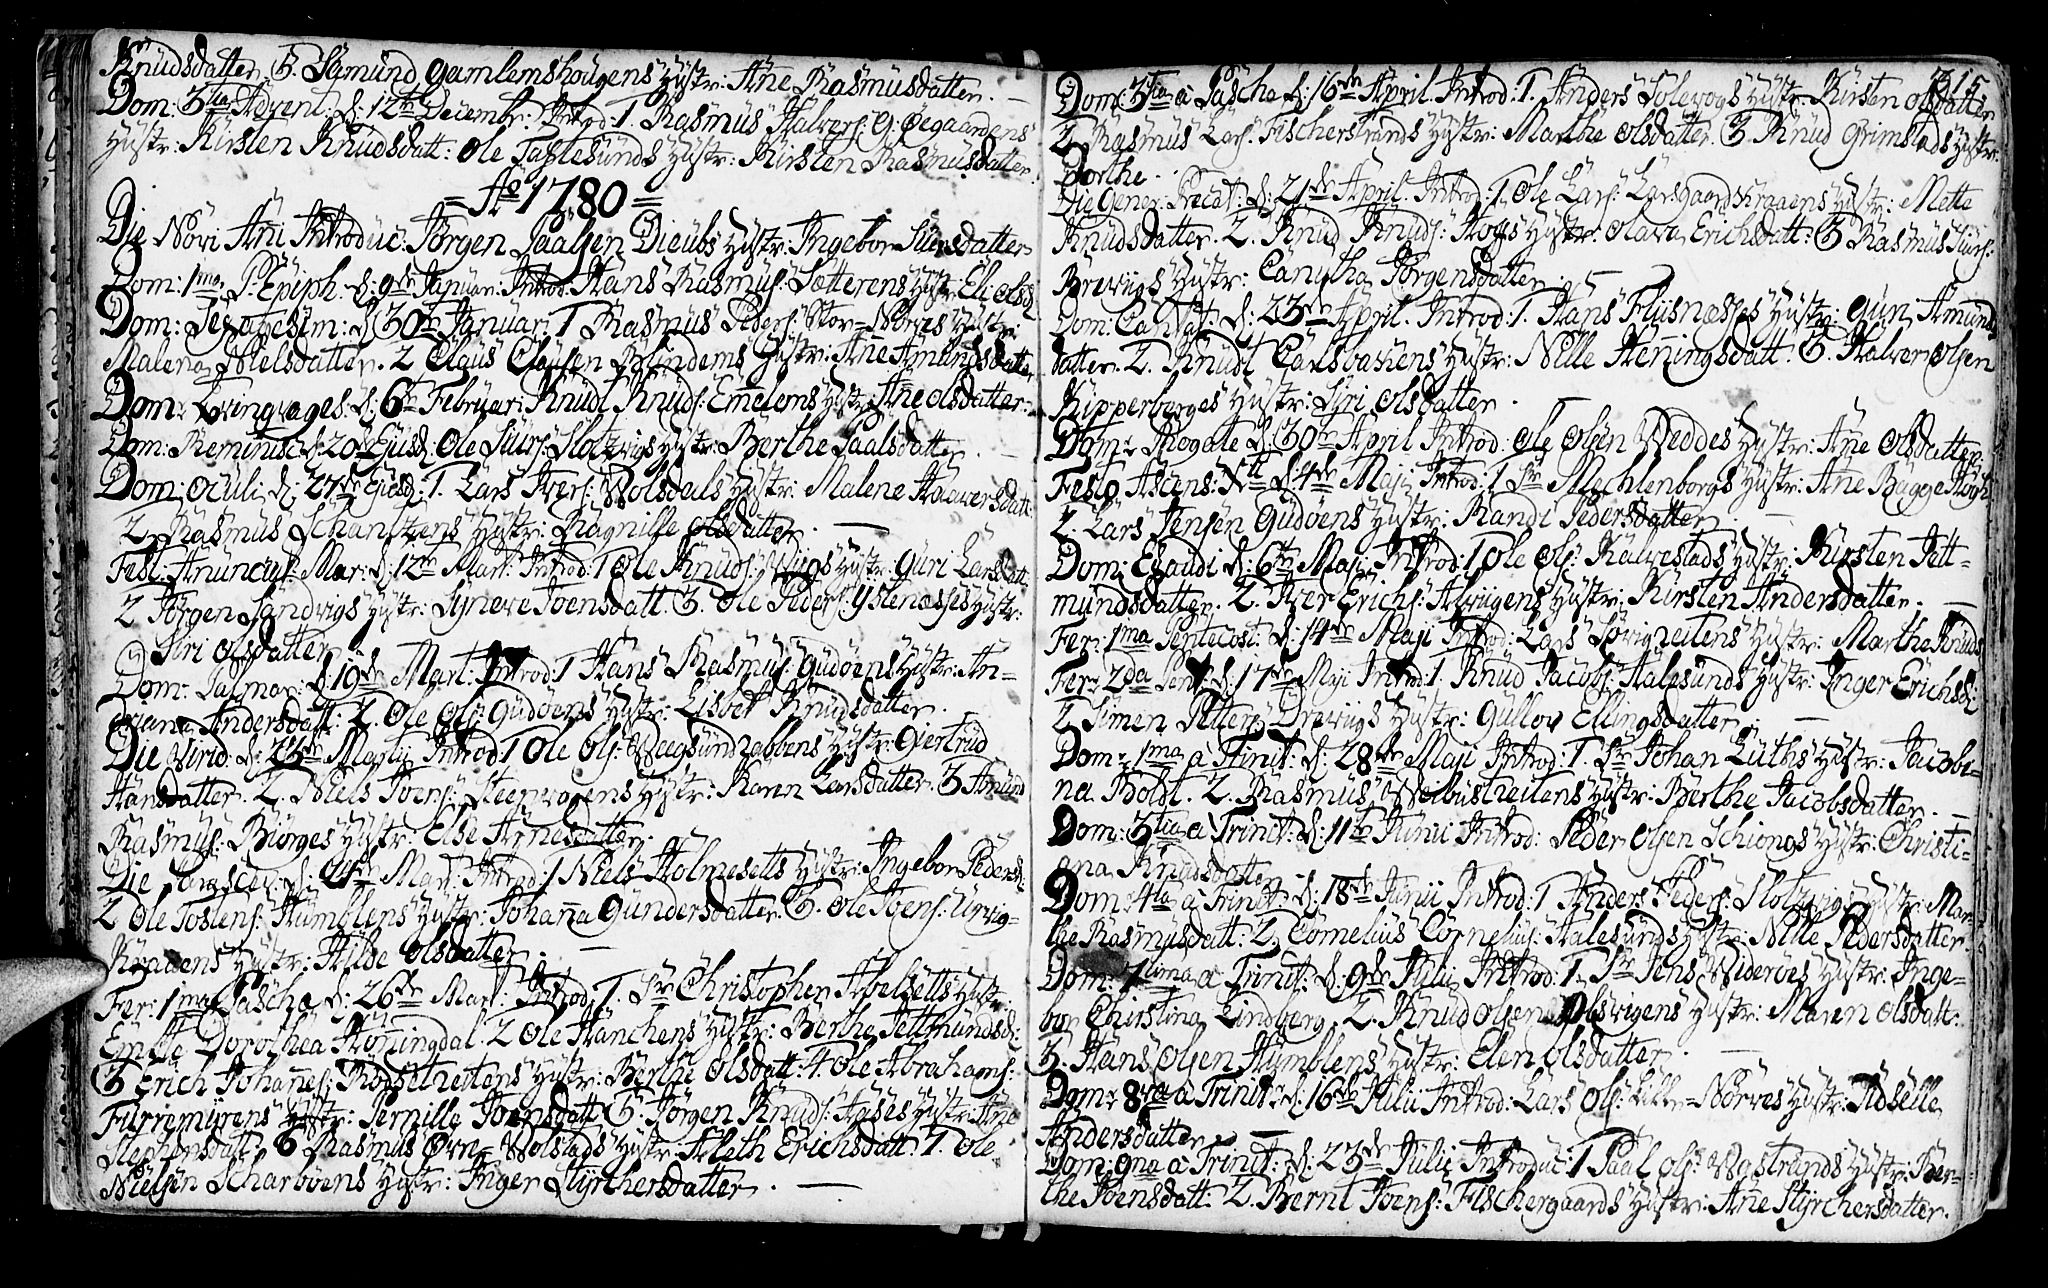 Knudsdatter. 3. Samund Gamlemshougens Hustr: Ane Rasmusdatter. —
Dom: 3tia Advent: d: 12te Decembr: Introd: 1. Rasmus Halvers: Øegaardens
Hustr: Kirsten Knudsdatt: Ole Taftesunds Hustr: Kirsten Rasmusdatter.
= Ao 1780 =
Die Novi Ani Introduc: Jørgen Paalsen Dieubs Hustr: Ingebor Siversdatter
Dom: 1ma P: Epiph. d: 9de Januar: Introd: Hans Rasmus: Sætterens Hustr: Eli Olsd:
Dom: Sexagesim: d: 30te Januar: 1 Rasmus Peders: Stor-Nørves Hustr:
Malena Nielsdatter. 2 Claus Clausen Blindems Hustr: Ane Amundsdatter
Dom: d: 6te Februar: Knud Knuds: Emelems Hustr: Ane Olsdatter.
Dom: Reminisc: d: 20de Ejusd: Ole Siurs: Slotzvigs Hustr: Berthe Paalsdatter. —
Dom: Oculi d: 27de Ejusd: 1. Lars Ivers: Wolsdals Hustr: Malene Halversdatt:
2 Rasmus Schantzens Hustr: Ragnille Olsdatter. —
Fest: Anunciat: Mar: d: 12te Mart: Introd: 1 Ole Knuds: Wiigs Hustr: Guri Larsdatt:
2 Jørgen Sandvigs Hustr: Synneve Joensdatt. 3. Ole Peders: Ystenæsses Hustr:
Siri Olsdatter
Dom: Palmar: d: 19de Mart: Introd: 1 Hans Rasmus: Gudøens Hustr: An-
Andersdatt: 2. Ole Ols: Gudøens Hustr: Lisbet Knudsdatter.
Die Virid: d: Martii Introd: 1 Ole Ols: Veegsundrabbens Hustr: Giertrud
Hansdatter. 2. Niels Joens: Steenvogens Hustr: Karen Larsdatter. 3 Amund
Rasmus: Biørges Hustr: Else Arnesdatter.
Die Mart: Introd: 1 Niels Holmesetts Hustr: Ingebor Pedersd:
2 Ole Tostens: Humblens Hustr: Johanna Gundersdatter. 3. Ole Joens: Urvig-
Kraaens Hustr: Hilde Olsdatter. —
Fer: 1ma Pascha d: 26de Mart: Introd: 1. Sr Christopher Abelsetts Hustr:
Dorothea Honingdal. 2 Ole Hanchens Hustr: Berthe Pettmundsd:
3 Erich Johanes: Rodsetreitens Hustr: Berthe Olsdatt: 4. Ole Abrahams:
Furremyrens Hustr: Pernille Joensdatt: 5. Jørgen Knuds: Aases Hustr: Ane
Stephensdatt. 6 Rasmus Ørn-Wolstads Hustr: Aleth Erichsdatt: 7. Ole
Nielsen Scharbøens Hustr: Inger Styrchersdatter. —
215
Dom: 3tia à Pascha d: 16de April. Introd: 1. Anders Solevogs Hustr: Kirsten Olsdatter
2 Rasmus Lars: Fischerstrands Hustr: Marthe Olsdatter. 3. Knud Grimstads Hustr:
Dorthe.
Die Gener: Precat: d: 21de April. Introd: 1. Ole Lars: Larsgaardskraaens Hustr: Mette
Knudsdatter. 2. Knud Knuds: Hogs Hustr: Olava Erichsdatt: 3 Rasmus Siurs:
Brevigs Hustr: Canutha Jørgensdatter.
Dom: Cantat: d: 23de April. Introd: 1. Hans Fliisnæsses Hustr: Guri Amunds
datter. 2. Knudt Carlsbachens Hustr: Nille Heningsdatt. 3. Halver Olsen
Kipperberges Hustr: Siri Olsdatter. —
Dom: Rogate d: 30te April Introd: Ole Olsen Veddes Hustr: Ane Olsdatter.
Festo Ascens: Xti d: 4de Maji Introd: 1 Sr Mechlenborgs Hustr: Ane Bagge Hogh
2. Lars Jensen Gudøens Hustr: Randi Pedersdatter
Dom: Exaudi d: 6te Maji Introd: 1 Ole Ols: Kalvestads Hustr: Kirsten Pett-
mundsdatter. 2. Iver Erichs: Alviigens Hustr: Kirsten Andersdatter. —
Fer: 1ma Pentecost: d: 14de Maji Introd: Lars Løvigreitens Hustr: Marthe Knuds
Fer: 2da Pent: d: 17de Maji Introd: 1. Knud Jacobs: Aalesunds Hustr: Inger Erichsd:
2 Simen Petters: Dreviigs Hustr: Gullov Ellingsdatter. —
Dom: 1ma à Trinit: d: 28de Maji Introd: 1. Sr Johan Luths Hustr: Jacobi-
na Boldt. 2. Rasmus Weibustreitens Hustr: Berthe Jacobsdatter. —
Dom: 3tia à Trinit: d: 11te Junii Introd: Peder Olsen Schiongs Hustr: Christi-
ana Knudsdatter
Dom: 4ta à Trinit: d: 18de Junii Introd: 1 Anders Peders: Slotzvigs Hustr: Mar-
the Rasmusdatt: 2. Cornelius Cornelius: Aalesunds Hustr: Nille Pedersdatter
Dom: 7tima à Trinit: d: 9de Julii Introd: 1. Sr Jens Widerøes Hustr: Inge-
bor Chirstina Lindberg. 2. Knud Olsen Olsvigens Hustr: Maren Olsdatt:
3. Hans Olsen Humblens Hustr: Elen Olsdatter. —
Dom: 8va à Trinit: d: 16de Julii Introd: Lars Ols: Lille-Nørves Hustr: Sidselle
Andersdatter. —
Dom: 9na à Trinit: d: 23de Julii Introduc: 1 Paal Ols: Vastrands Hustr: Ber-
the Joensdatt: 2. Bernt Joens: Fischergaards Hustr: Ane Styrchersdatter.